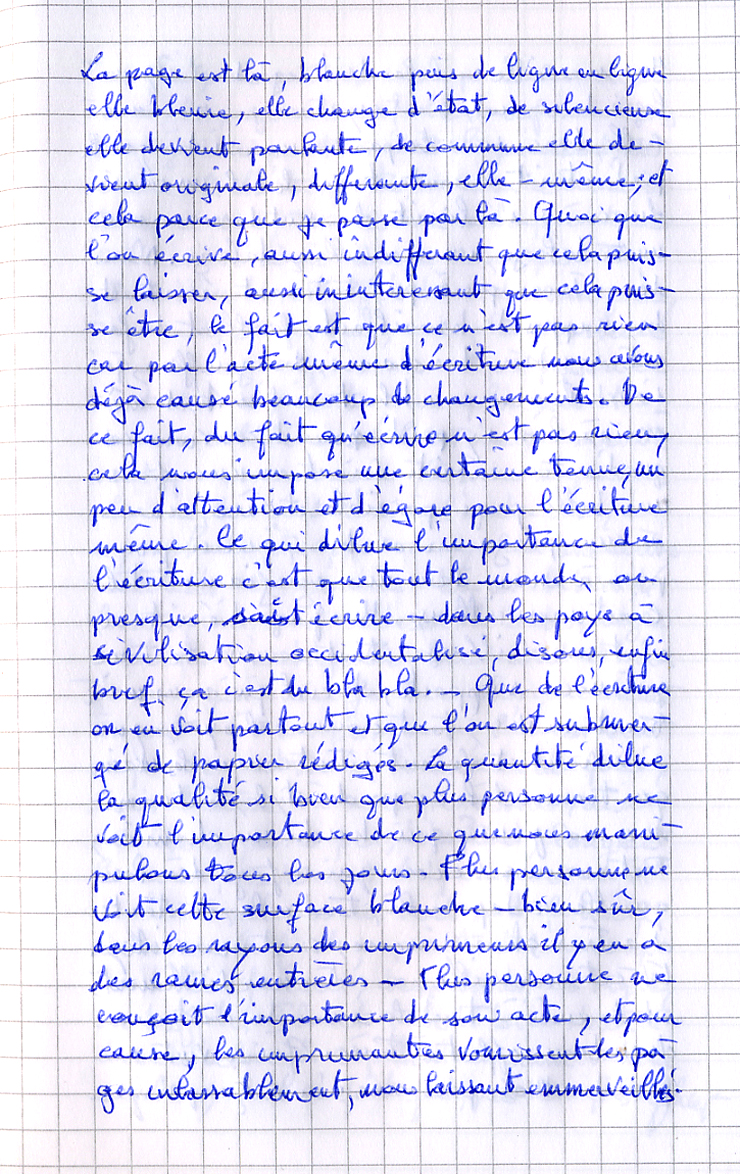 La page est là, blanche puis de ligne en ligne
elle bleuie, elle change d'état, de silencieuse
elle devient parlante, de commune elle de-
vient originale, differante, elle-même, et
cela parce que je passe par là. Quoi que
l'on écrive, aussi indifferant que cela puis-
se laisser, aussi ininteressant que cela puis-
se être, le fait est que ce n'est pas rien
car par l'acte même d'écriture nous avons
déjà causé beaucoup de changements. De
ce fait, du fait qu'écrire n'est pas rien,
cela nous impose une certaine tenue, un
peu d'attention et d'égare pour l'écriture
même. Ce qui dilue l'importance de
l'écriture c'est que tout le monde, ou
presque, sait écrire - dans les pays à
sivilisation occidentalisé, disons, enfin
bref, ça c'est du bla bla. - Que de l'écriture
on en voit partout et que l'on est submer-
gé de papier rédigés. La quantité dilue
la qualité si bien que plus personne ne
voit l'importance de ce que nous mani-
pulons tous les jours. Plus personne ne
voit cette surface blanche - bien sûr,
dans les rayons des imprimeurs il y en a
des rames entières - Plus personne ne
conçoit l'importance de son acte, et pour
cause, les imprimantes vomissent les pa-
ges inlassablement, nous laissant emmerveillés.